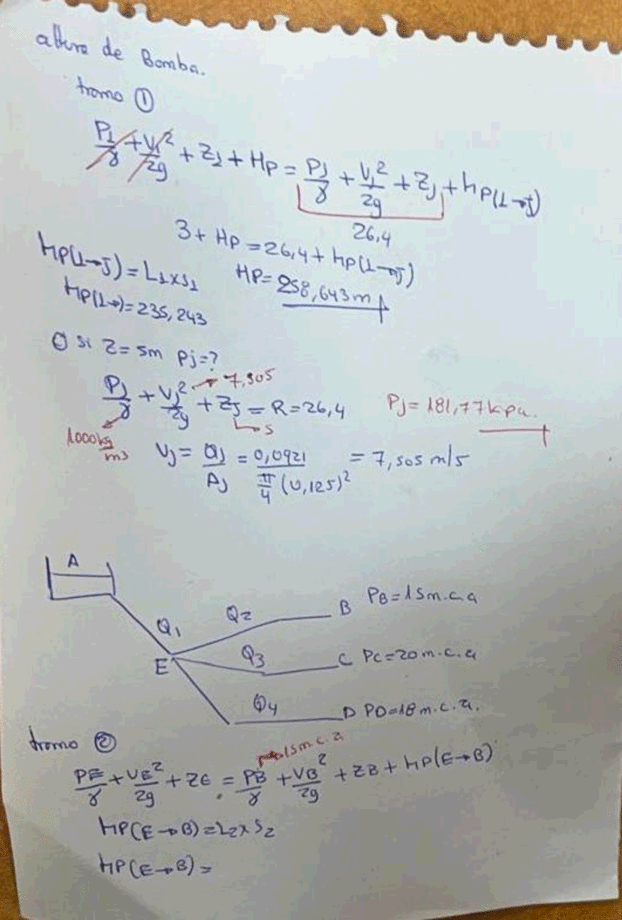 altura de Bomba.
tramo ①
P1/γ + V1²/2g + Z1 + HP = PJ/γ + VJ²/2g + ZJ + HP(1→J)
26,4
3 + HP = 26,4 + HP(1→J)
HP(1→J) = L1xS1
HP = 258,643m
HP(1→) = 235,243
Si Z = 5m PJ=?
7,505
PJ/γ + VJ²/2g + ZJ = R = 26,4
PJ = 181,77 kpa.
1000 kg/m3
5
VJ = QJ/AJ = 0,0921/(π/4 (0,125)²) = 7,505 m/s
A
Q1
Q2
B PB=15m.c.a
E
Q3
C PC=20m.c.a
Q4
D PD=18m.c.a.
tramo ②
15m.c.a
PE/γ + VE²/2g + ZE = PB/γ + VB²/2g + ZB + HP(E→B)
HP(E→B) = L2xS2
HP(E→B) =